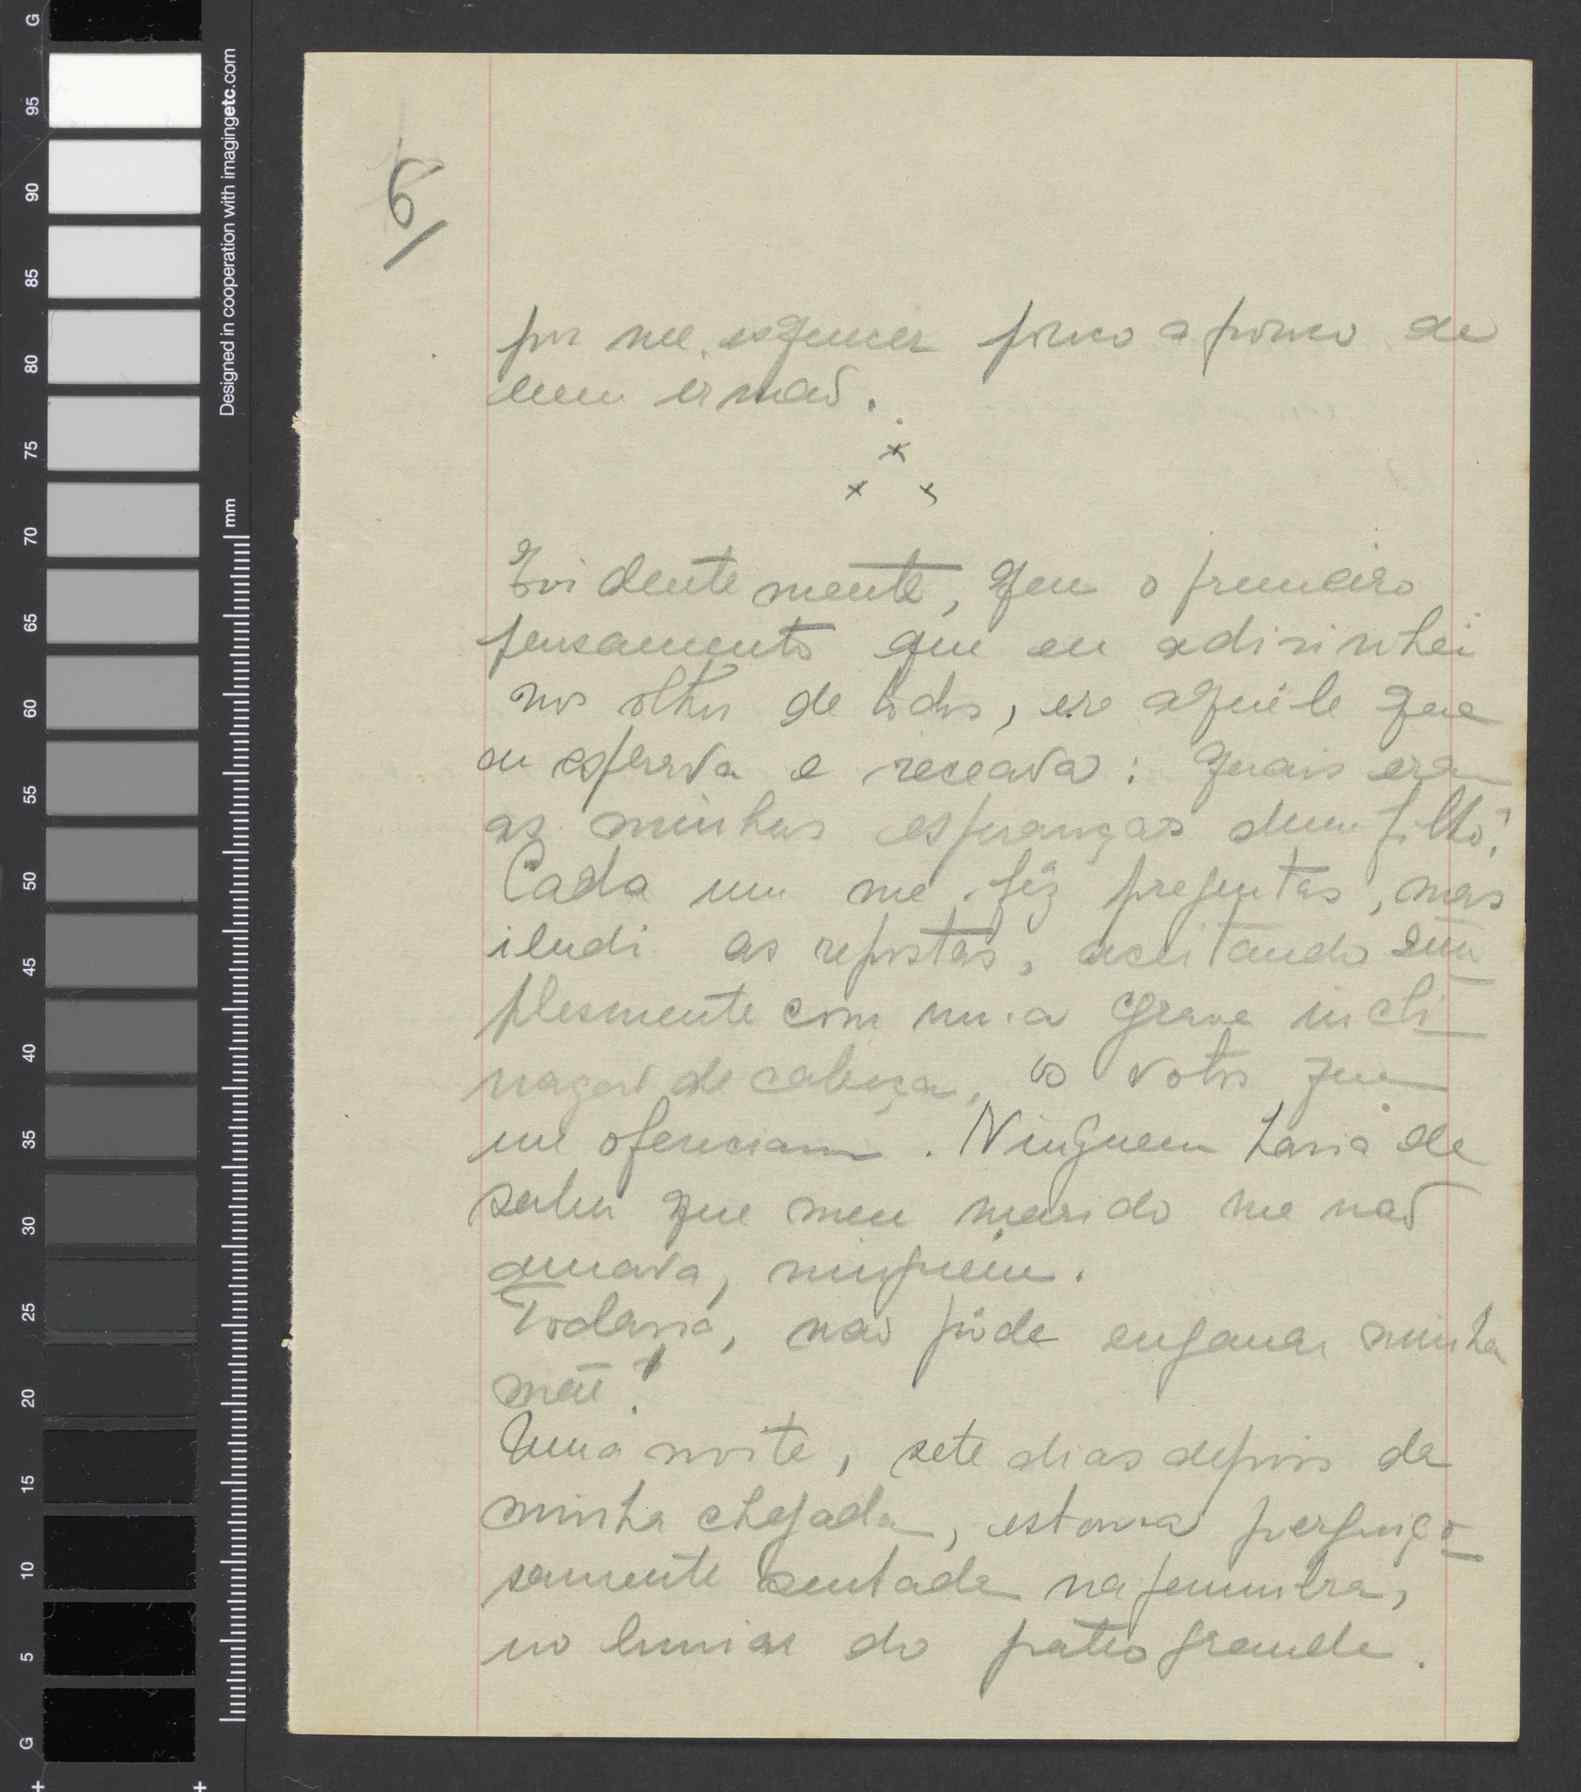 6/
por me esquecer pouco a pouco de
meu irmão.
x
x x
Evidentemente, que o primeiro
pensamento que eu adivinhei
nos olhos de todos, era aquêle que
eu esperava e receava: quais eram
as minhas esperanças dum filho?
Cada um me fêz preguntas, mas
iludi as repostas, aceitando sim
plesmente com uma grave incli
nação de cabeça, os votos que
me ofereciam. Ninguem havia de
saber que meu marido me não
amava, ninguem.
Todavia, não púde enganar minha
mãe!
Uma noite, sete dias depois da
minha chegada, estava preguiço
samente sentada na penumbra,
no limiar do pateo grande.
G
95
90
85
80
75
70
65
60
55
50
45
40
35
30
25
20
15
10
5
G
Designed in cooperation with imagingetc.com
mm